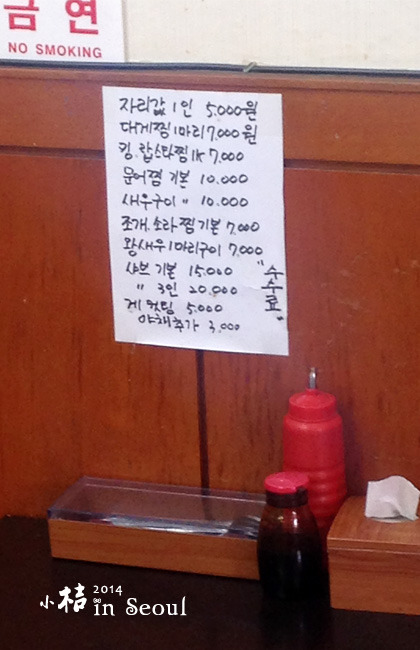 금연
NO SMOKING
자리값 1인 5.000원
대게찜 1마리 7.000원
킹.랍스타찜 1K 7.000
문어찜 기본 10.000
새우구이 〃 10.000
조개.소라찜 기본 7.000
왕새우 1마리구이 7.000
샤브 기본 15.000
〃 3인 20.000
게 컷팅 5.000
야채추가 3.000
"수수료"
小桔 2014 in Seoul